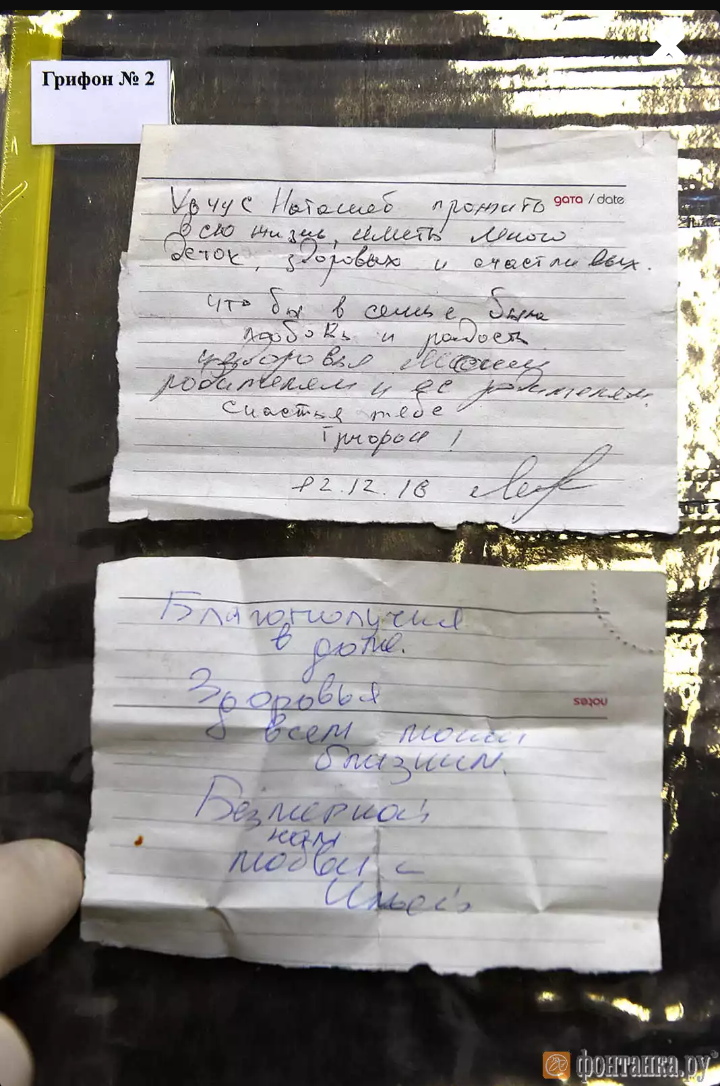 Грифон № 2
дата / date
Хочу с Наташей прожить
всю жизнь, иметь много
деток, здоровых и счастливых.
что бы в семье была
любовь и радость
здоровья моим
родителям и ее родителям.
Счастья тебе
Грифон !
12.12.18
Благополучия
в доме.
Здоровья
notes
всем моим
близким.
Безмерной
нам
любви с
Ильей
фонтанка.ру